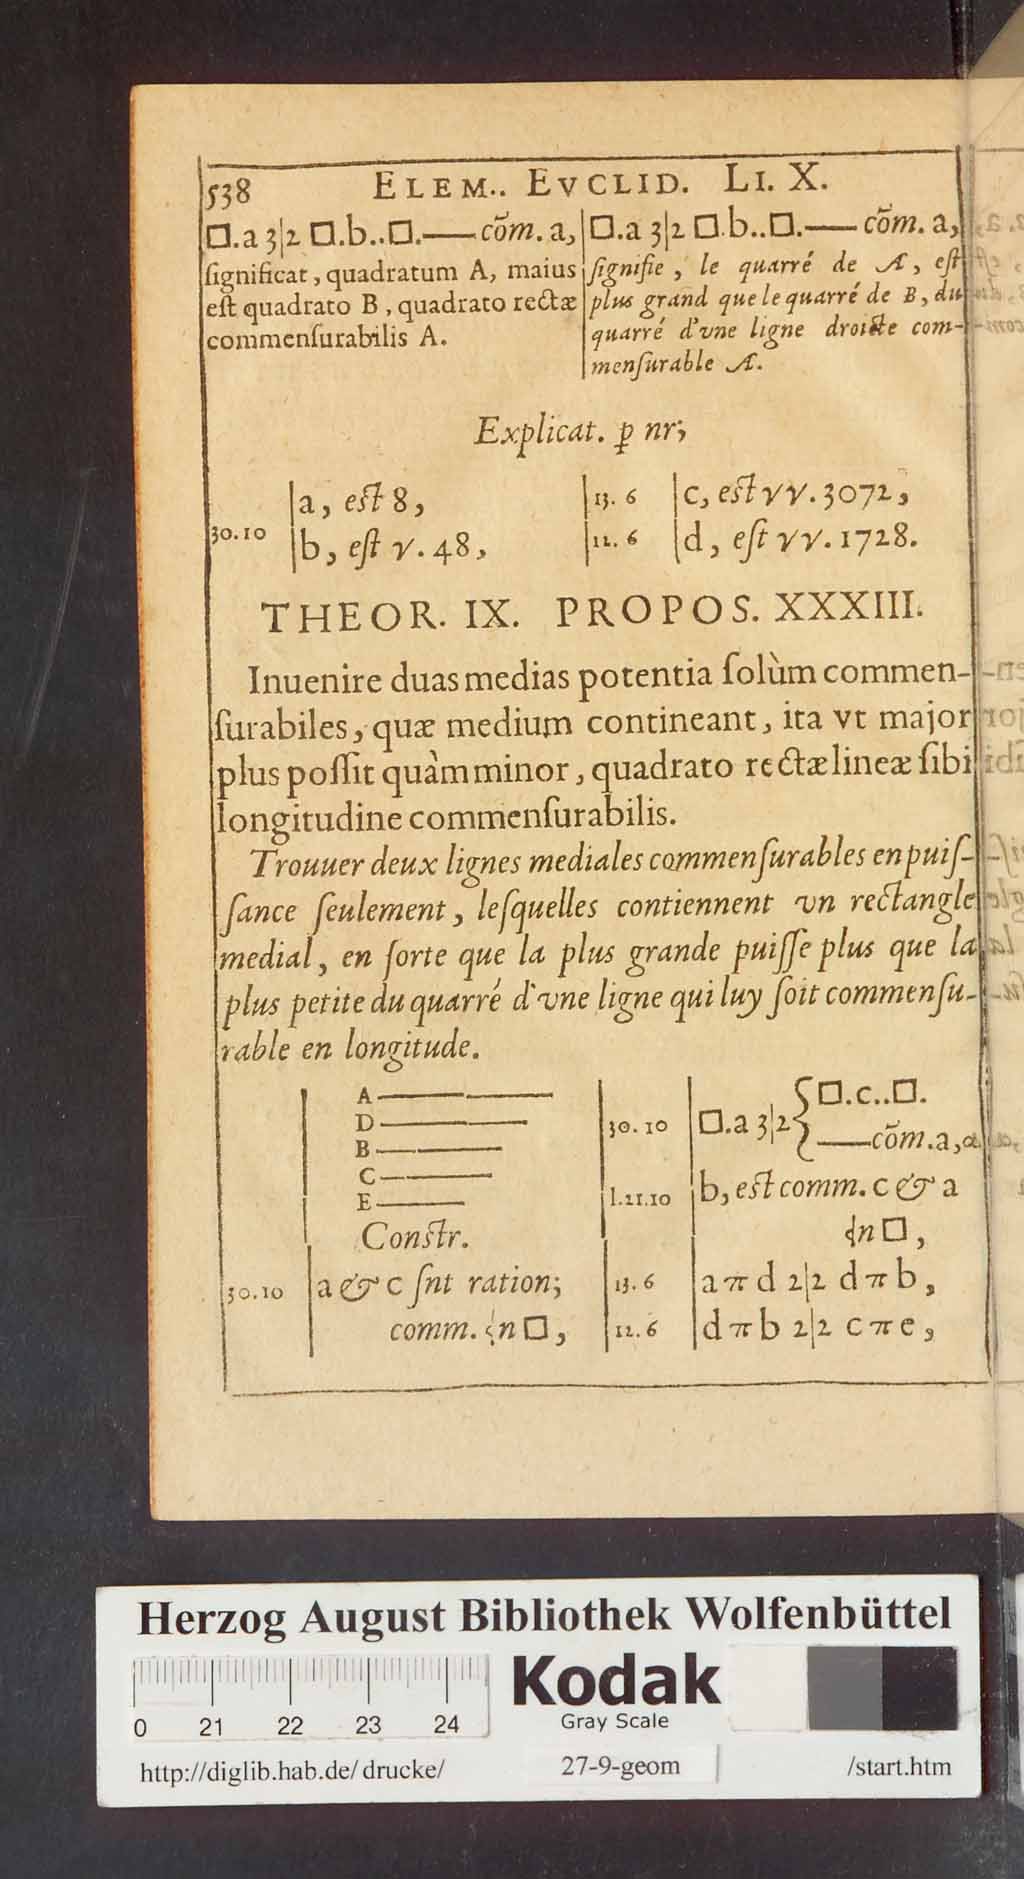 538 ELEM.. EVCLID. LI. X.
□.a 3|2 □.b..□.—— cõm. a,
ſignificat, quadratum A, maius
eſt quadrato B, quadrato rectæ
commenſurabilis A.
□.a 3|2 □.b..□.—— cõm. a,
ſignifie, le quarré de A, eſt
plus grand que le quarré de B, du
quarré d'vne ligne droicte com-
menſurable A.
Explicat. ꝑ nr;
30.10
a, eſt 8,
b, eſt √. 48,
13. 6 c, eſt √√. 3072,
12. 6 d, eſt √√. 1728.
THEOR. IX. PROPOS. XXXIII.
Inuenire duas medias potentia ſolùm commen-
ſurabiles, quæ medium contineant, ita vt major
plus poſſit quàm minor, quadrato rectæ lineæ ſibi
longitudine commenſurabilis.
Trouuer deux lignes mediales commenſurables en puiſ-
ſance ſeulement, leſquelles contiennent vn rectangle
medial, en ſorte que la plus grande puiſſe plus que la
plus petite du quarré d'vne ligne qui luy ſoit commenſu-
rable en longitude.
A
D
B
C
E
Conſtr.
30.10 a & c ſnt ration;
comm. ʠn □,
30.10 □.a 3|2 { □.c..□.
——cõm.a,
1.21.10 b, eſt comm. c & a
ʠn □,
13. 6 a π d 2|2 d π b,
12. 6 d π b 2|2 c π e,
Herzog August Bibliothek Wolfenbüttel
0 21 22 23 24
Kodak
Gray Scale
http://diglib.hab.de/drucke/ 27-9-geom /start.htm